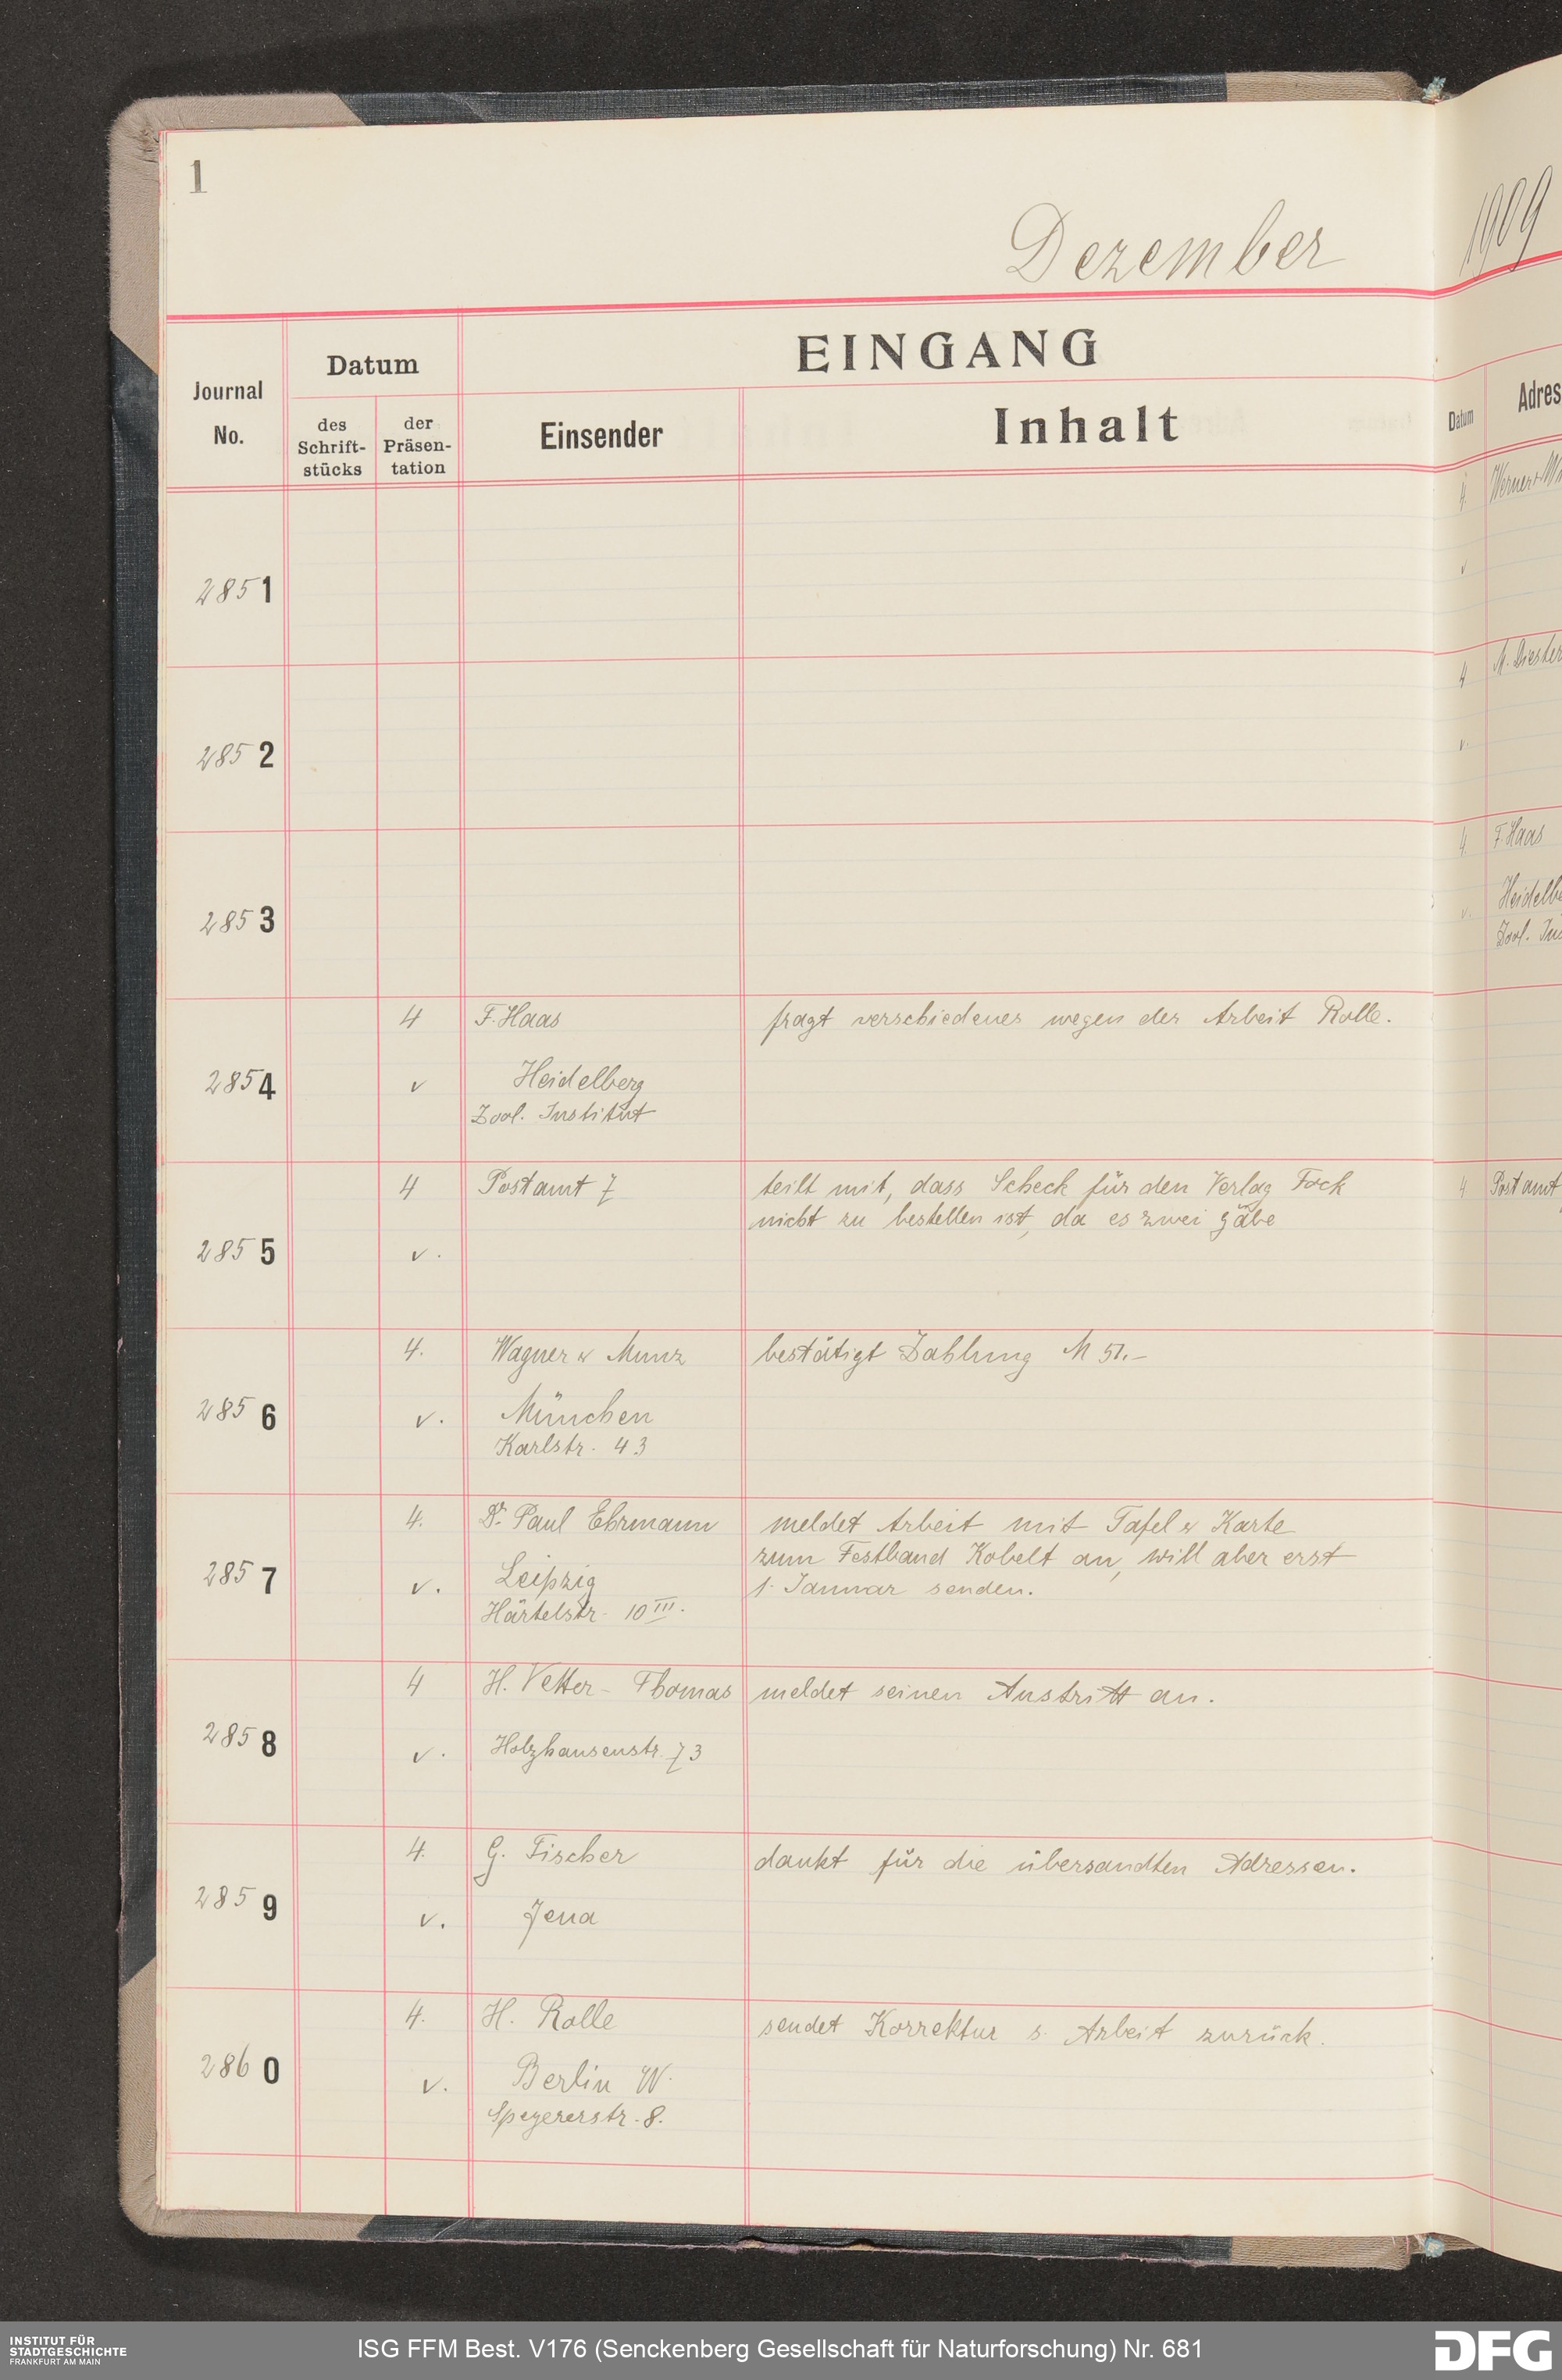 1
Dezember
1909
EINGANG
Journal No.
Datum
des Schrift-stücks
der Präsen-tation
Einsender
Inhalt
Datum
Adres
2851
4.
2852
4
M. Diester
v.
2853
4.
F. Haas
v.
Heidelbe
Zool. Ins
2854
4
F. Haas
fragt verschiedenes wegen der Arbeit Rolle.
v
Heidelberg
Zool. Institut
2855
4
Postamt 7
teilt mit, dass Scheck für den Verlag Fock
nicht zu bestellen ist, da es zwei gäbe
v.
4
Postamt
2856
4.
Wagner u Munz
bestätigt Zahlung M 51.-
v.
München
Karlstr. 43
2857
4.
Dr. Paul Ehrmann
meldet Arbeit mit Tafel u Karte
zum Festband Kobelt an, will aber erst
v.
Leipzig
1. Januar senden.
Härtelstr. 10 III.
2858
4
H. Vetter - Thomas
meldet seinen Austritt an.
v.
Holzhausenstr. 73
2859
4.
G. Fischer
dankt für die übersandten Adressen.
v.
Jena
2860
4.
H. Rolle
sendet Korrektur s. Arbeit zurück.
v.
Berlin W.
Speyererstr. 8.
INSTITUT FÜR
STADTGESCHICHTE
FRANKFURT AM MAIN
ISG FFM Best. V176 (Senckenberg Gesellschaft für Naturforschung) Nr. 681
DFG